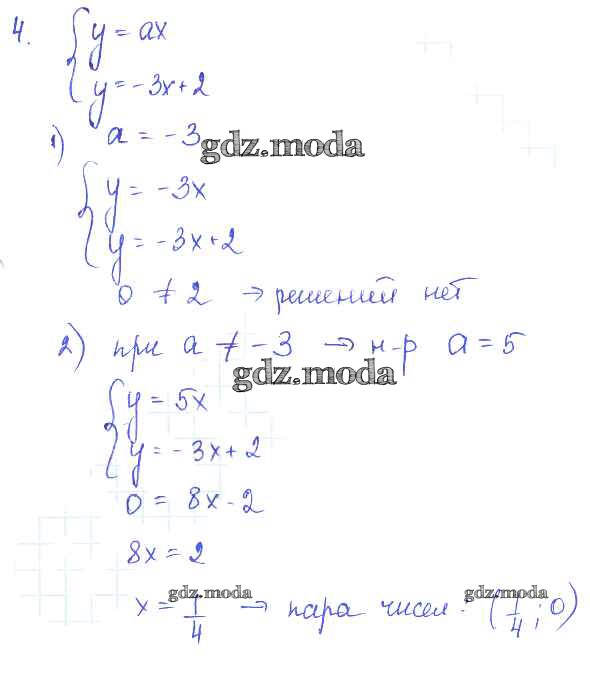 4. { y = ax
y = -3x + 2
1) a = -3
gdz.moda
{ y = -3x
y = -3x + 2
0 ≠ 2 → решений нет
2) при a ≠ -3 → н-р a = 5
gdz.moda
{ y = 5x
y = -3x + 2
0 = 8x - 2
8x = 2
gdz.moda gdz.moda
x = 1/4 → пара чисел: (1/4; 0)